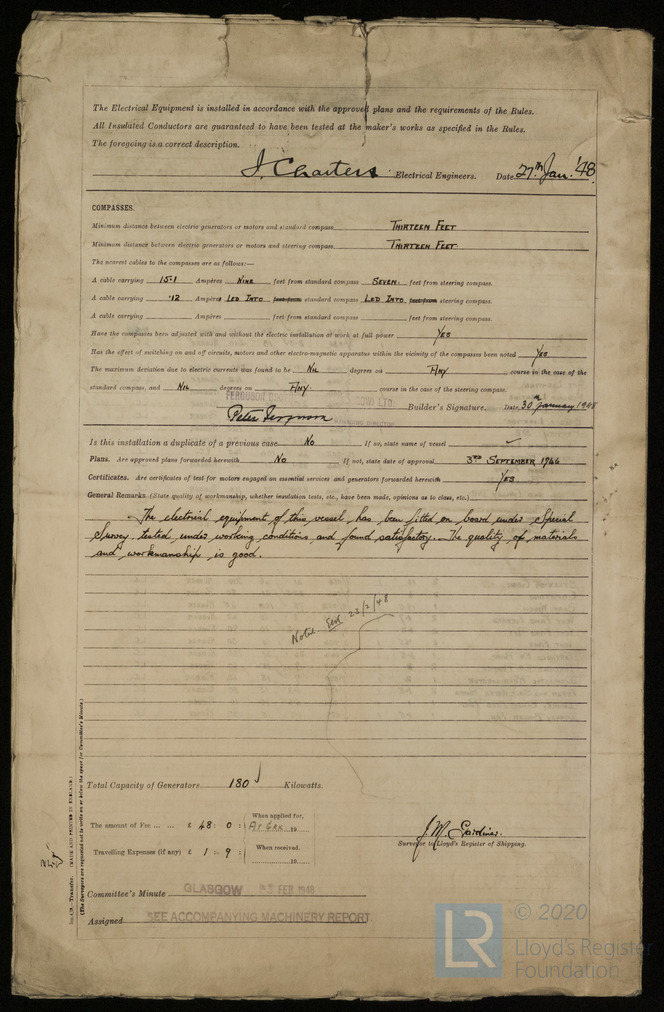 The Electrical Equipment is installed in accordance with the approved plans and the requirements of the Rules.
All Insulated Conductors are guaranteed to have been tested at the maker's works as specified in the Rules.
The foregoing is a correct description.
J. Charters Electrical Engineers. Date 27th Jan. '48
COMPASSES.
Minimum distance between electric generators or motors and standard compass THIRTEEN FEET
Minimum distance between electric generators or motors and steering compass THIRTEEN FEET
The nearest cables to the compasses are as follows:—
A cable carrying 15.1 Ampères NINE feet from standard compass SEVEN feet from steering compass.
A cable carrying .12 Ampères LED INTO feet from standard compass LED INTO feet from steering compass.
A cable carrying Ampères feet from standard compass feet from steering compass.
Have the compasses been adjusted with and without the electric installation at work at full power YES
Has the effect of switching on and off circuits, motors and other electro-magnetic apparatus within the vicinity of the compasses been noted YES
The maximum deviation due to electric currents was found to be NIL degrees on ANY course in the case of the
standard compass, and NIL degrees on ANY course in the case of the steering compass.
FERGUSON LTD.
Peter Ferguson Builder's Signature. Date 30th January 1948
Is this installation a duplicate of a previous case No If so, state name of vessel
Plans. Are approved plans forwarded herewith No If not, state date of approval 3RD SEPTEMBER 1946
Certificates. Are certificates of test for motors engaged on essential services and generators forwarded herewith YES
General Remarks (State quality of workmanship, whether insulation tests, etc., have been made, opinions as to class, etc.)
The electrical equipment of this vessel has been fitted on board under Special
Survey, tested under working conditions and found satisfactory. The quality of materials
and workmanship is good.
Noted 23/2/48
Total Capacity of Generators 180 Kilowatts.
The amount of Fee ... ... £ 48 : 0 : When applied for, 19
Travelling Expenses (if any) £ 1 : 9 : When received, 19
J. M. Gardiner
Surveyor to Lloyd's Register of Shipping.
Committee's Minute GLASGOW FEB 1948
Assigned SEE ACCOMPANYING MACHINERY REPORT.
Transfer. (MADE AND PRINTED IN ENGLAND.)
(The Surveyors are requested not to write on or below the space for Committee's Minute.)
LR
© 2020
Lloyd's Register
Foundation